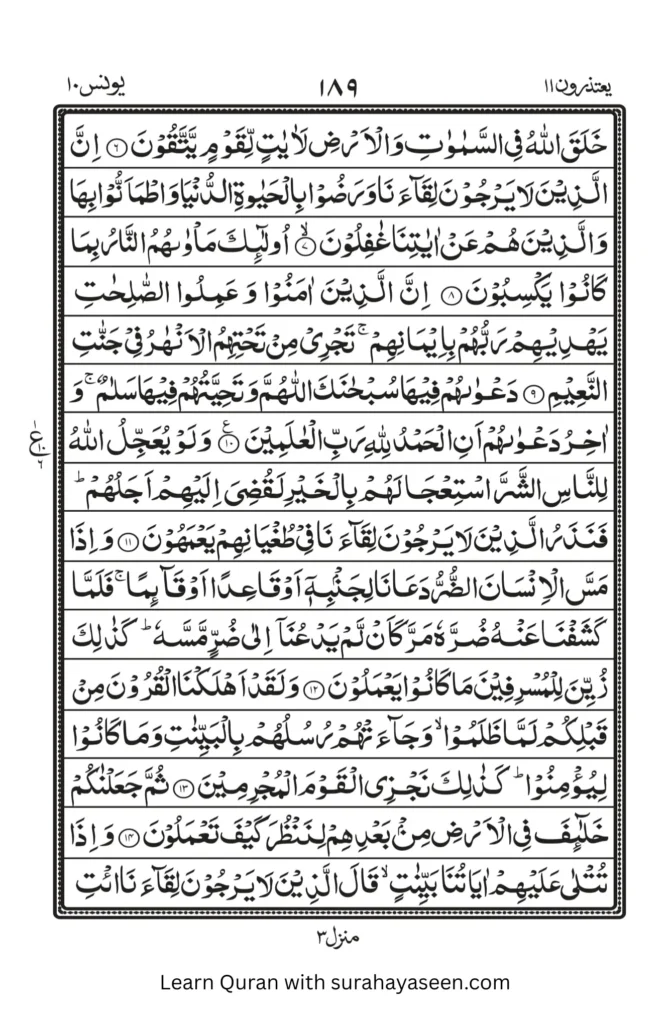 یعتذرون ۱۱
۱۸۹
یونس ۱۰
خَلَقَ اللّٰهُ فِی السَّمٰوٰتِ وَالْاَرْضِ لَاٰیٰتٍ لِّقَوْمٍ یَّتَّقُوْنَ ۝۶ اِنَّ
الَّذِیْنَ لَا یَرْجُوْنَ لِقَآءَنَا وَرَضُوْا بِالْحَیٰوةِ الدُّنْیَا وَاطْمَاَنُّوْا بِهَا
وَالَّذِیْنَ هُمْ عَنْ اٰیٰتِنَا غٰفِلُوْنَ ۝۷ۙ اُولٰٓئِكَ مَاْوٰىهُمُ النَّارُ بِمَا
كَانُوْا یَكْسِبُوْنَ ۝۸ اِنَّ الَّذِیْنَ اٰمَنُوْا وَ عَمِلُوا الصّٰلِحٰتِ
یَهْدِیْهِمْ رَبُّهُمْ بِاِیْمَانِهِمْ ۚ تَجْرِیْ مِنْ تَحْتِهِمُ الْاَنْهٰرُ فِیْ جَنّٰتِ
النَّعِیْمِ ۝۹ دَعْوٰىهُمْ فِیْهَا سُبْحٰنَكَ اللّٰهُمَّ وَ تَحِیَّتُهُمْ فِیْهَا سَلٰمٌ ۚ وَ
اٰخِرُ دَعْوٰىهُمْ اَنِ الْحَمْدُ لِلّٰهِ رَبِّ الْعٰلَمِیْنَ ۝۱۰ وَ لَوْ یُعَجِّلُ اللّٰهُ
لِلنَّاسِ الشَّرَّ اسْتِعْجَالَهُمْ بِالْخَیْرِ لَقُضِیَ اِلَیْهِمْ اَجَلُهُمْ ؕ
فَنَذَرُ الَّذِیْنَ لَا یَرْجُوْنَ لِقَآءَنَا فِیْ طُغْیَانِهِمْ یَعْمَهُوْنَ ۝۱۱ وَ اِذَا
مَسَّ الْاِنْسَانَ الضُّرُّ دَعَانَا لِجَنْۢبِهٖۤ اَوْ قَاعِدًا اَوْ قَآىِٕمًا ۚ فَلَمَّا
كَشَفْنَا عَنْهُ ضُرَّهٗ مَرَّ كَاَنْ لَّمْ یَدْعُنَاۤ اِلٰی ضُرٍّ مَّسَّهٗ ؕ كَذٰلِكَ
زُیِّنَ لِلْمُسْرِفِیْنَ مَا كَانُوْا یَعْمَلُوْنَ ۝۱۲ وَ لَقَدْ اَهْلَكْنَا الْقُرُوْنَ مِنْ
قَبْلِكُمْ لَمَّا ظَلَمُوْا ۙ وَ جَآءَتْهُمْ رُسُلُهُمْ بِالْبَیِّنٰتِ وَ مَا كَانُوْا
لِیُؤْمِنُوْا ؕ كَذٰلِكَ نَجْزِی الْقَوْمَ الْمُجْرِمِیْنَ ۝۱۳ ثُمَّ جَعَلْنٰكُمْ
خَلٰٓىِٕفَ فِی الْاَرْضِ مِنْۢ بَعْدِهِمْ لِنَنْظُرَ كَیْفَ تَعْمَلُوْنَ ۝۱۴ وَ اِذَا
تُتْلٰی عَلَیْهِمْ اٰیَاتُنَا بَیِّنٰتٍ ۙ قَالَ الَّذِیْنَ لَا یَرْجُوْنَ لِقَآءَنَا ائْتِ
ع
۱۰
۶
منزل ۳
Learn Quran with surahayaseen.com